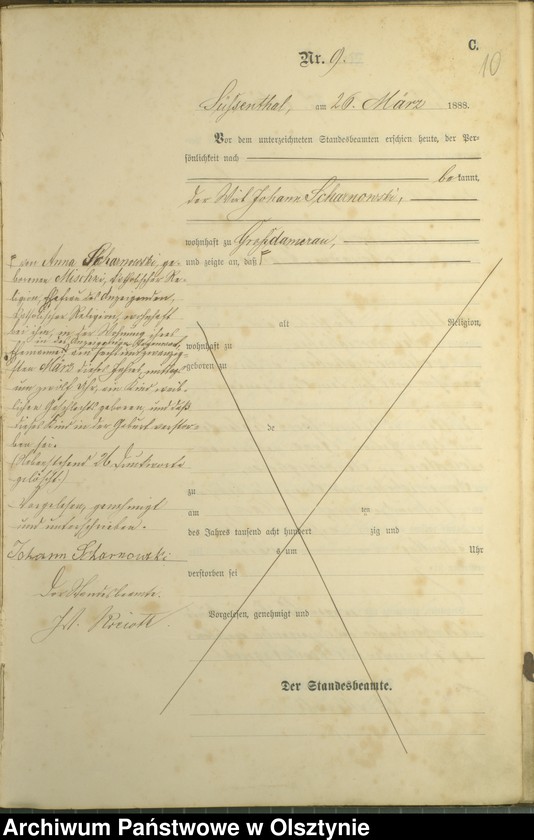 C.
10
Nr. 9.
Süssenthal, am 26. März 1888.
Vor dem unterzeichneten Standesbeamten erschien heute, der Per-
sönlichkeit nach
be kannt,
der Wirt Johann Scharnowski,
wohnhaft zu Großdamerau,
und zeigte an, daß
von Anna Scharnowski, ge-
borenen katholischer Re-
ligion, Ehefrau des Anzeigenden,
katholischer Religion, wohnhaft
bei ihm, in der Wohnung ihres
Ehemannes am sechsundzwanzig-
sten März dieses Jahres, mittags
um zwölf Uhr, ein Kind weib-
lichen Geschlechts geboren, und daß
dieses Kind in der Geburt verstor-
ben sei.
(Nebenstehend 26 Druckworte
gelöscht.)
Vorgelesen, genehmigt
und unterschrieben.
Johann Scharnowski
Der Standesbeamte.
alt Religion,
wohnhaft zu
geboren zu
de
zu
am ten
des Jahres tausend acht hundert zig und
s um Uhr
verstorben sei
Vorgelesen, genehmigt und
Der Standesbeamte.
Archiwum Państwowe w Olsztynie